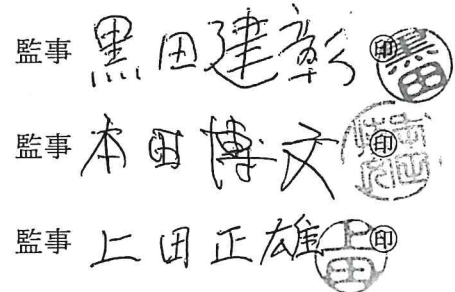 監事 黒田建彰 ㊞
監事 本田博文 ㊞
監事 上田正雄 ㊞